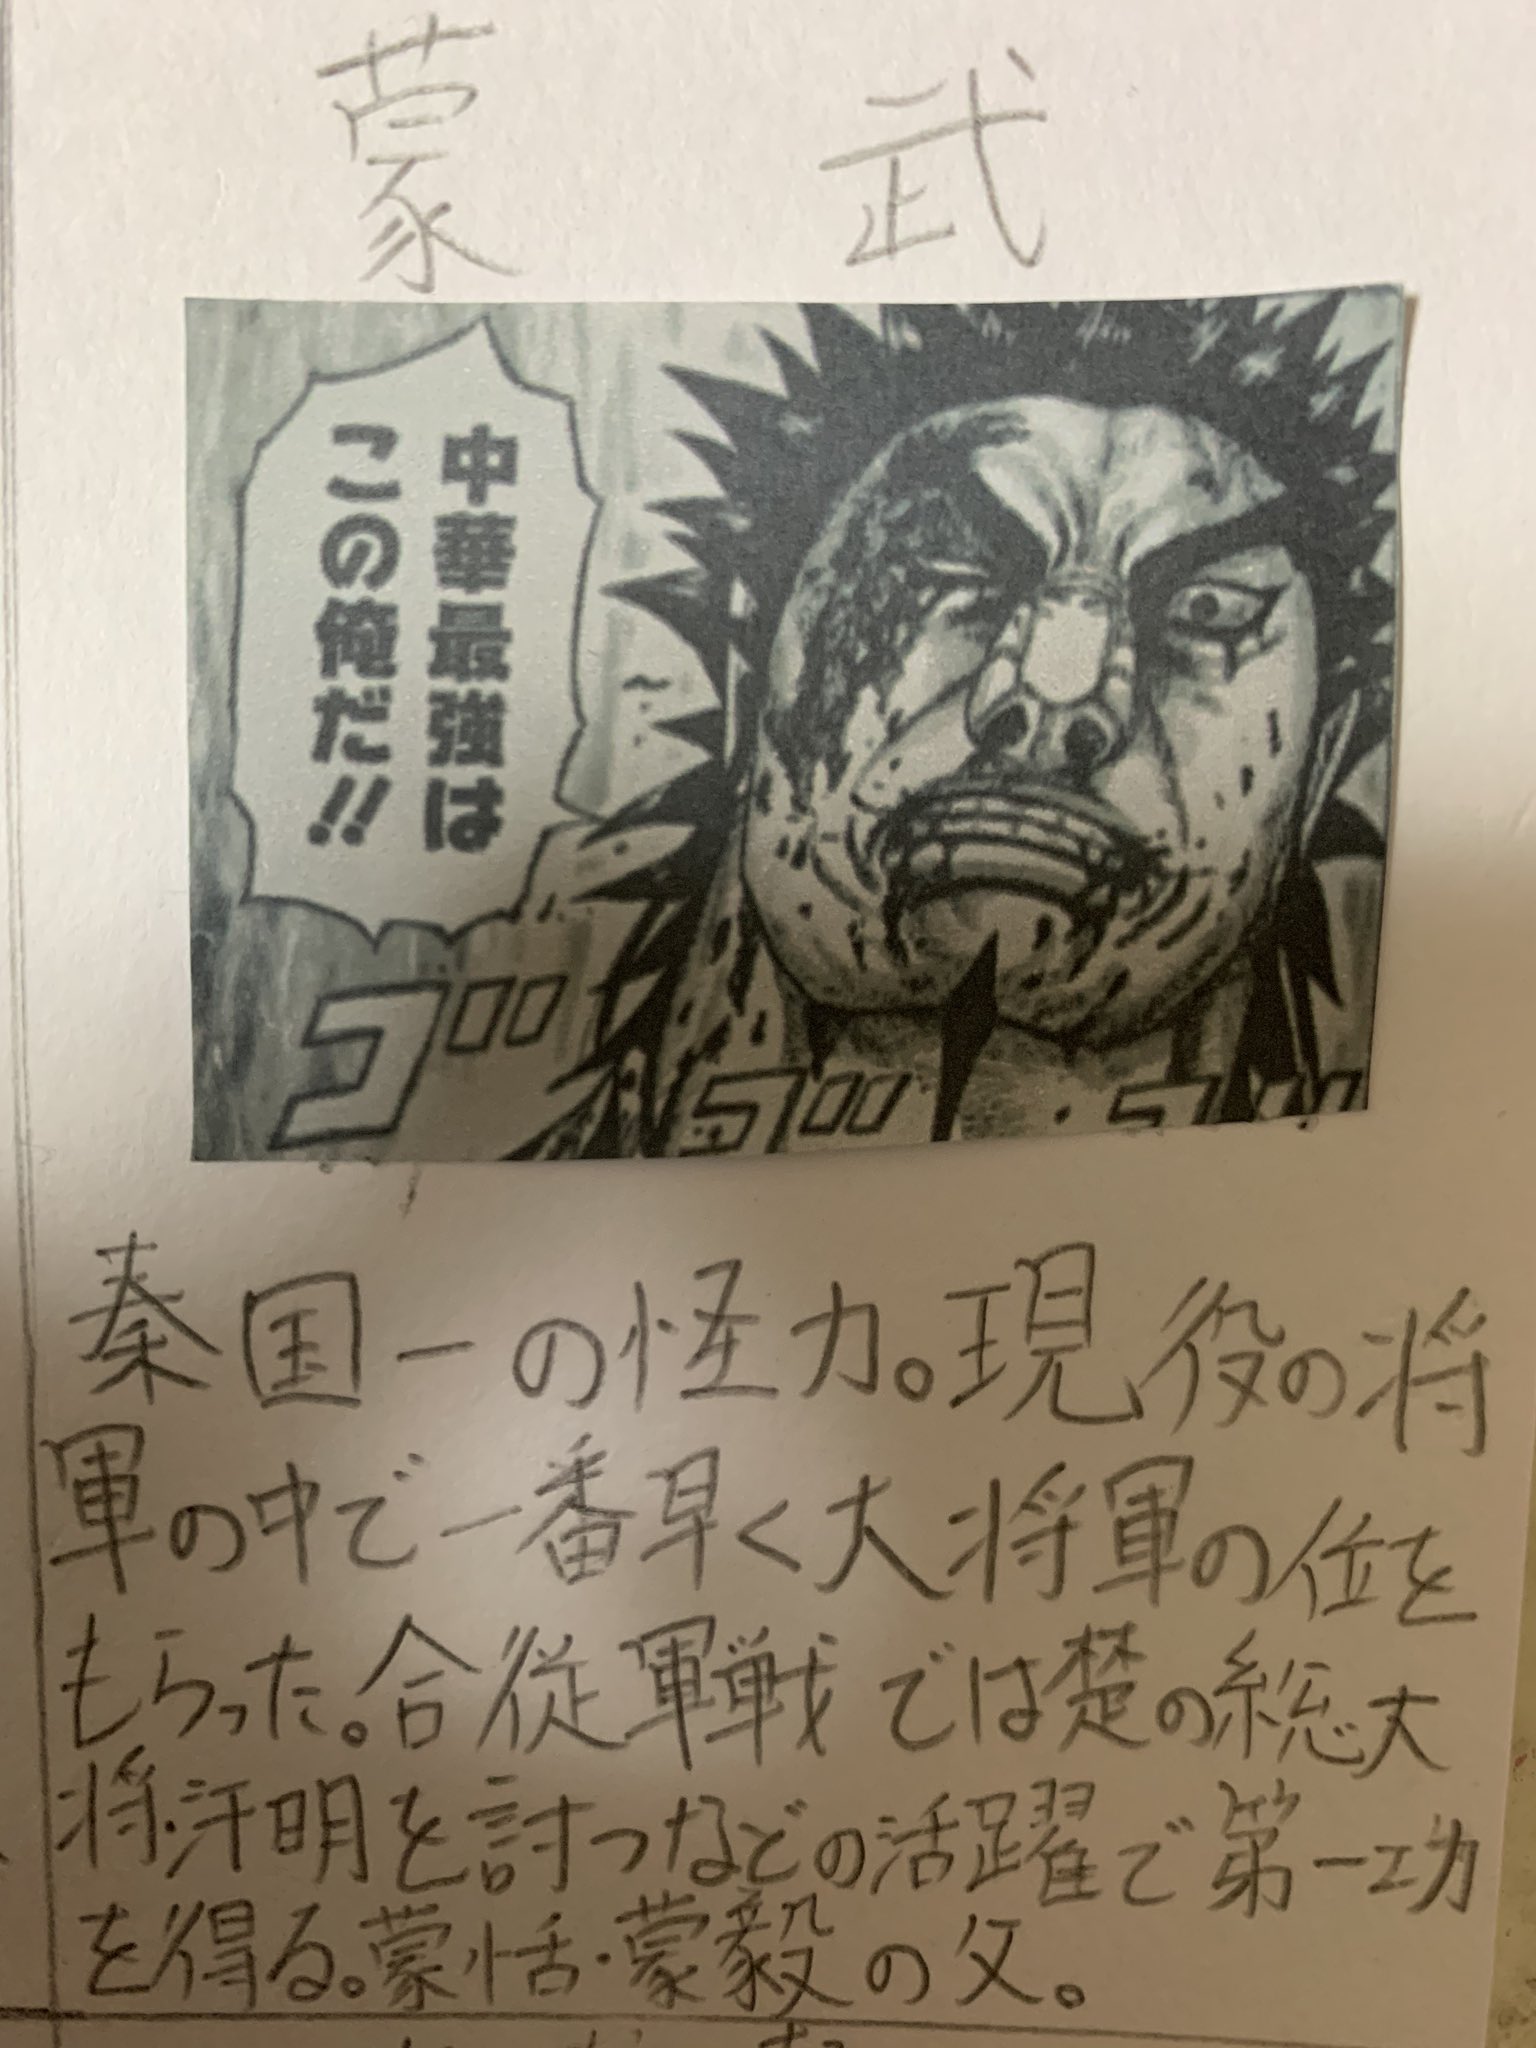 蒙 武
中華最強は
この俺だ!!
ゴ ゴ ゴ
秦国一の怪力。現役の将
軍の中で一番早く大将軍の位を
もらった。合従軍戦では楚の総大
将・汗明を討つなどの活躍で第一功
を得る。蒙恬・蒙毅の父。